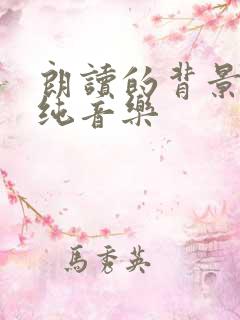 朗讀的背景
纯音樂
馬秀英